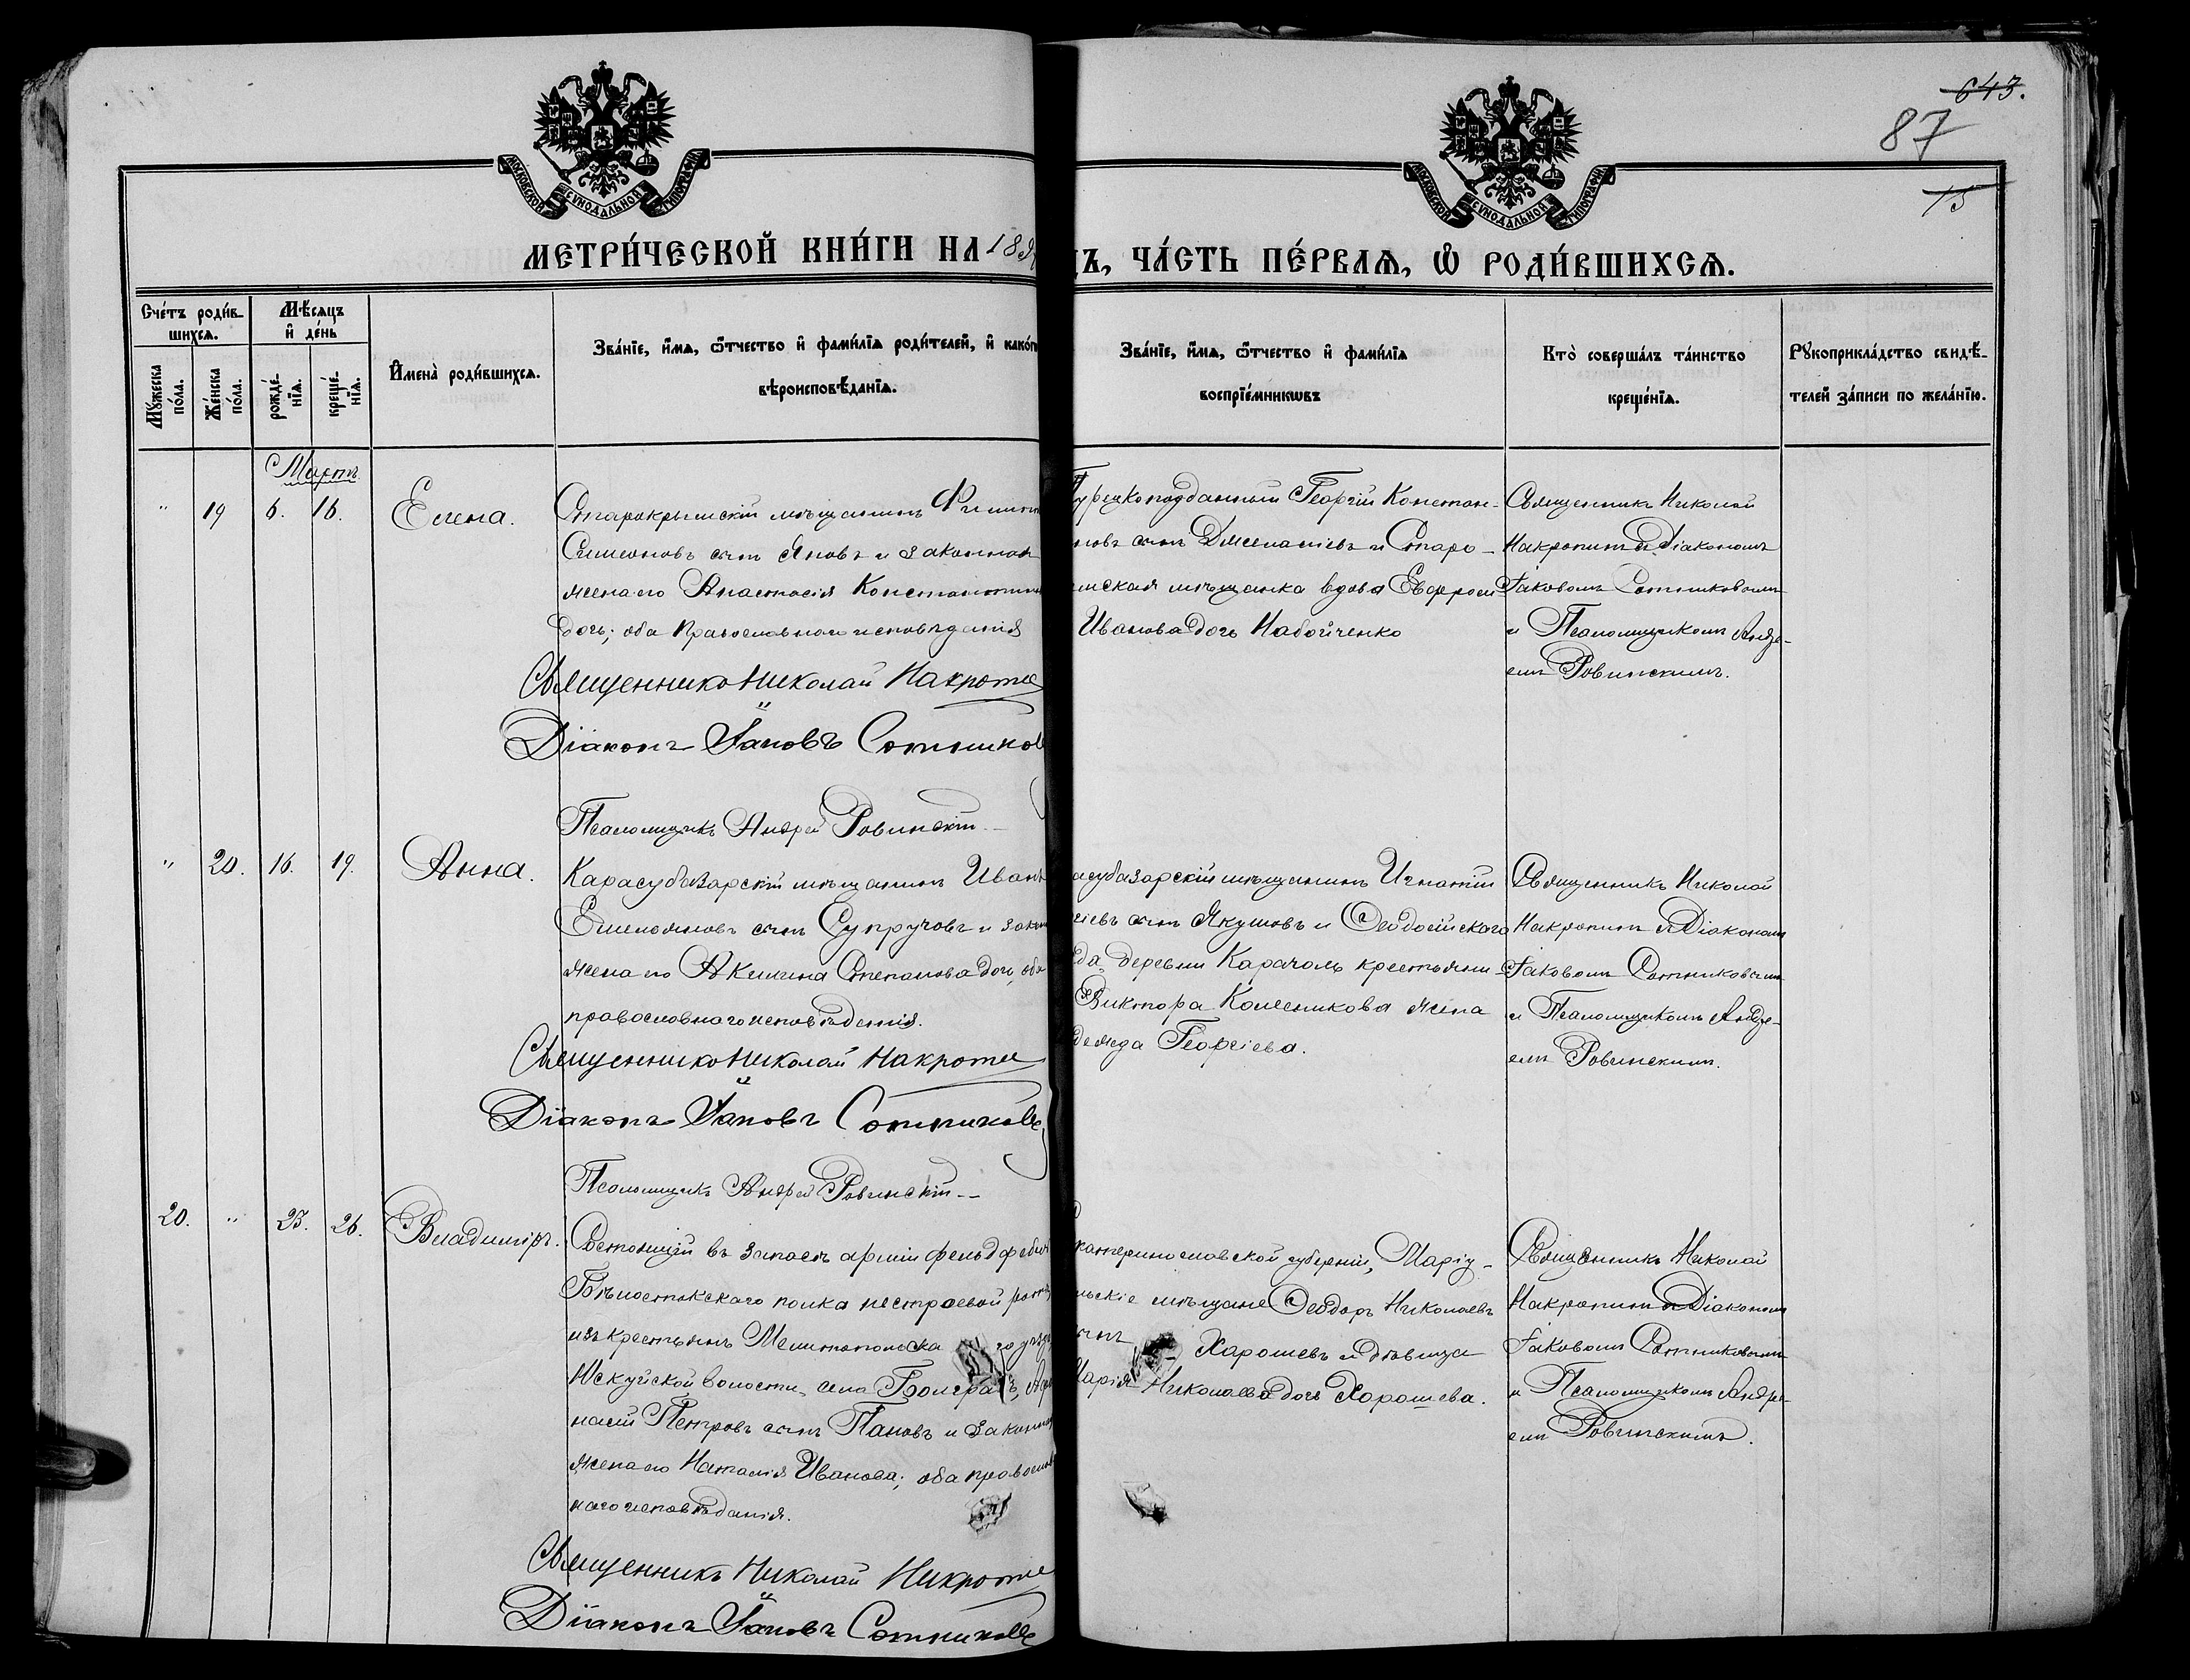 643.
87
15
МОСКОВСКОЙ СѴНОДАЛЬНОЙ ТИПОГРАФІИ
МОСКОВСКОЙ СѴНОДАЛЬНОЙ ТИПОГРАФІИ
МЕТРИ́ЧЕСКОЙ КНИ́ГИ НА 189
ДЪ, ЧА́СТЬ ПЕ́РВАѦ, Ѡ҆ РОДИ́ВШИХСѦ.
Сче́тъ роди́в-
шихсѧ.
Мѣ́сѧцъ
и҆ де́нь
Мꙋ́жеска по́ла.
Же́нска по́ла.
рожде́-нїѧ.
креще́-нїѧ.
И҆мена̀ роди́вшихсѧ.
Зва́нїе, и҆́мѧ, ѻ҆́тчество и҆ фами́лїѧ роди́телей, и҆ како́гѡ
вѣроисповѣ́данїѧ.
Зва́нїе, и҆́мѧ, ѻ҆́тчество и҆ фами́лїѧ
воспрїе́мникѡвъ
Кто̀ соверша́лъ та́инство
креще́нїѧ.
Рꙋкоприкла́дство свидѣ́-
телей за́писи по жела́нїю.
Мартъ
" 19 6. 16. Елена.
Старокрымскій мѣщанинъ
Симеоновъ сынъ Яновъ и законная
жена его Анастасія Константинова
дочь; оба Православного исповѣданія
Священникъ Николай Накропин
Діаконъ Іаковъ Сотников
Псаломщикъ Андрей Ровинскій
Турецкоподданный Георгій Констан-
новъ сынъ и Старо-
мская мѣщанка вдова Евфроси
Иванова дочь Набойченко
Священникъ Николай
Накропинъ съ Діакономъ
Іаковомъ Сотниковымъ
и Псаломщикомъ Андре-
емъ Ровинскимъ.
" 20. 16. 19. Анна.
Карасубазарскій мѣщанинъ Иванъ
сынъ Супруновъ и закон
жена его Акилина Степанова дочь, оба
православного исповѣданія.
Священникъ Николай Накропин
Діаконъ Іаковъ Сотниковъ
Псаломщикъ Андрей Ровинскій
асубазарскій мѣщанинъ Игнатій
сіевъ сынъ Якушовъ и Ѳеодосійского
да деревни Карачоль крестьяни-
Виктора Колесникова жена
дежда Георгіева.
Священникъ Николай
Накропинъ съ Діакономъ
Іаковомъ Сотниковымъ
и Псаломщикомъ Андре-
емъ Ровинскимъ.
20. " 25. 26. Владиміръ.
Состоящій въ запасѣ арміи фельдфебель
Бѣлостокского полка нестроевой роты
изъ крестьянъ Мелитопольска го уѣзда
волости, села Болград,
насій Петровъ сынъ Пановъ и законная
жена его Наталія Иванова; оба православ
ного исповѣданія.
Священникъ Николай Накропин
Діаконъ Іаковъ Сотниковъ
катеринославской губерніи, Маріу-
льскіе мѣщане Ѳеодоръ Николаевъ
сынъ Харошевъ и дѣвица
Марія Николаева дочь Хорошева.
Священникъ Николай
Накропинъ съ Діакономъ
Іаковомъ Сотниковымъ
и Псаломщикомъ Андре-
емъ Ровинскимъ.